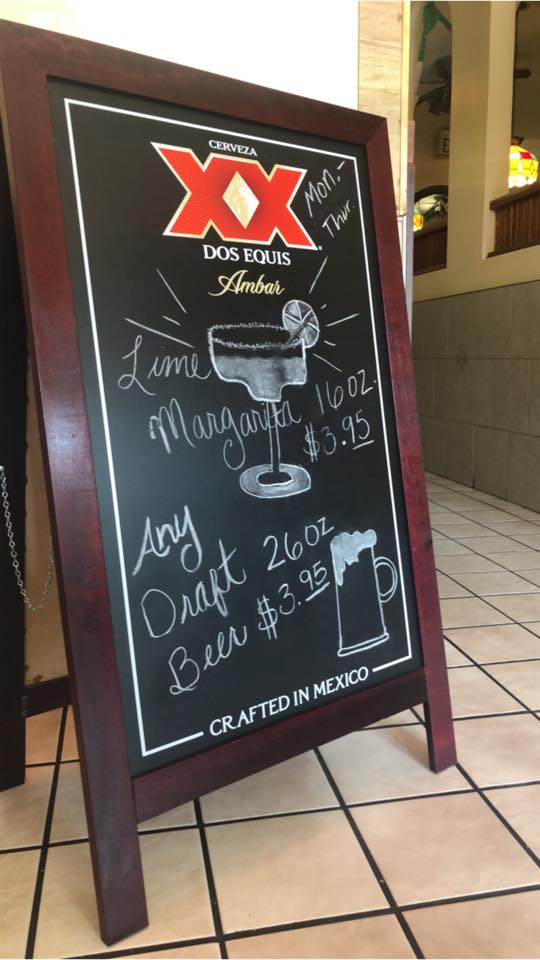 CERVEZA
XX
DOS EQUIS
Ambar
Mon. -
Thur.
Lime
Margarita 16 oz.
$3.95
Any
Draft 26 oz
Beer $3.95
CRAFTED IN MEXICO